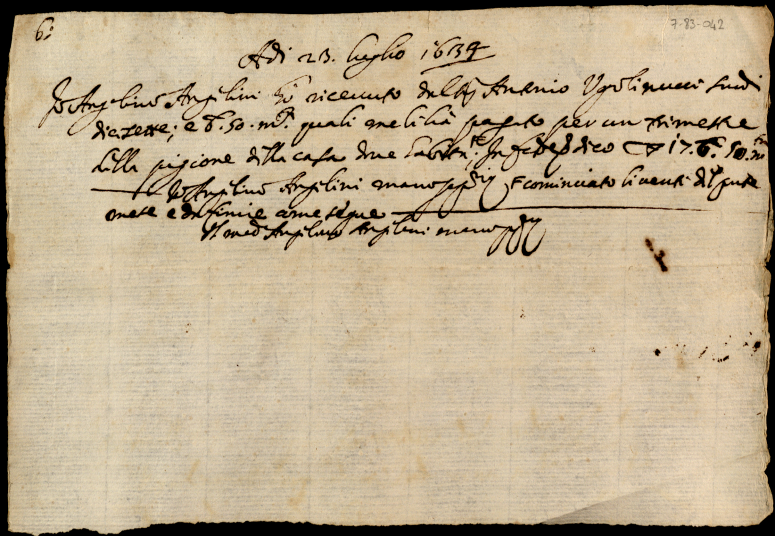 6.
7-83-042
Adi 23. luglio 1634
Io Angelino Angelini hò riceuuto dal Sr Antonio Ugolinucci scudi
diecisette; e b. 50. mta quali me li hà pagato per un trimestre
della pigione della casa doue habita; In fede dico ▽ 17. b. 50. mta
Io Angelino Angelini mano ppria cominciato li uenti del pnte
mese e da finire come segue
Il medo Angelino Angelini mano ppria